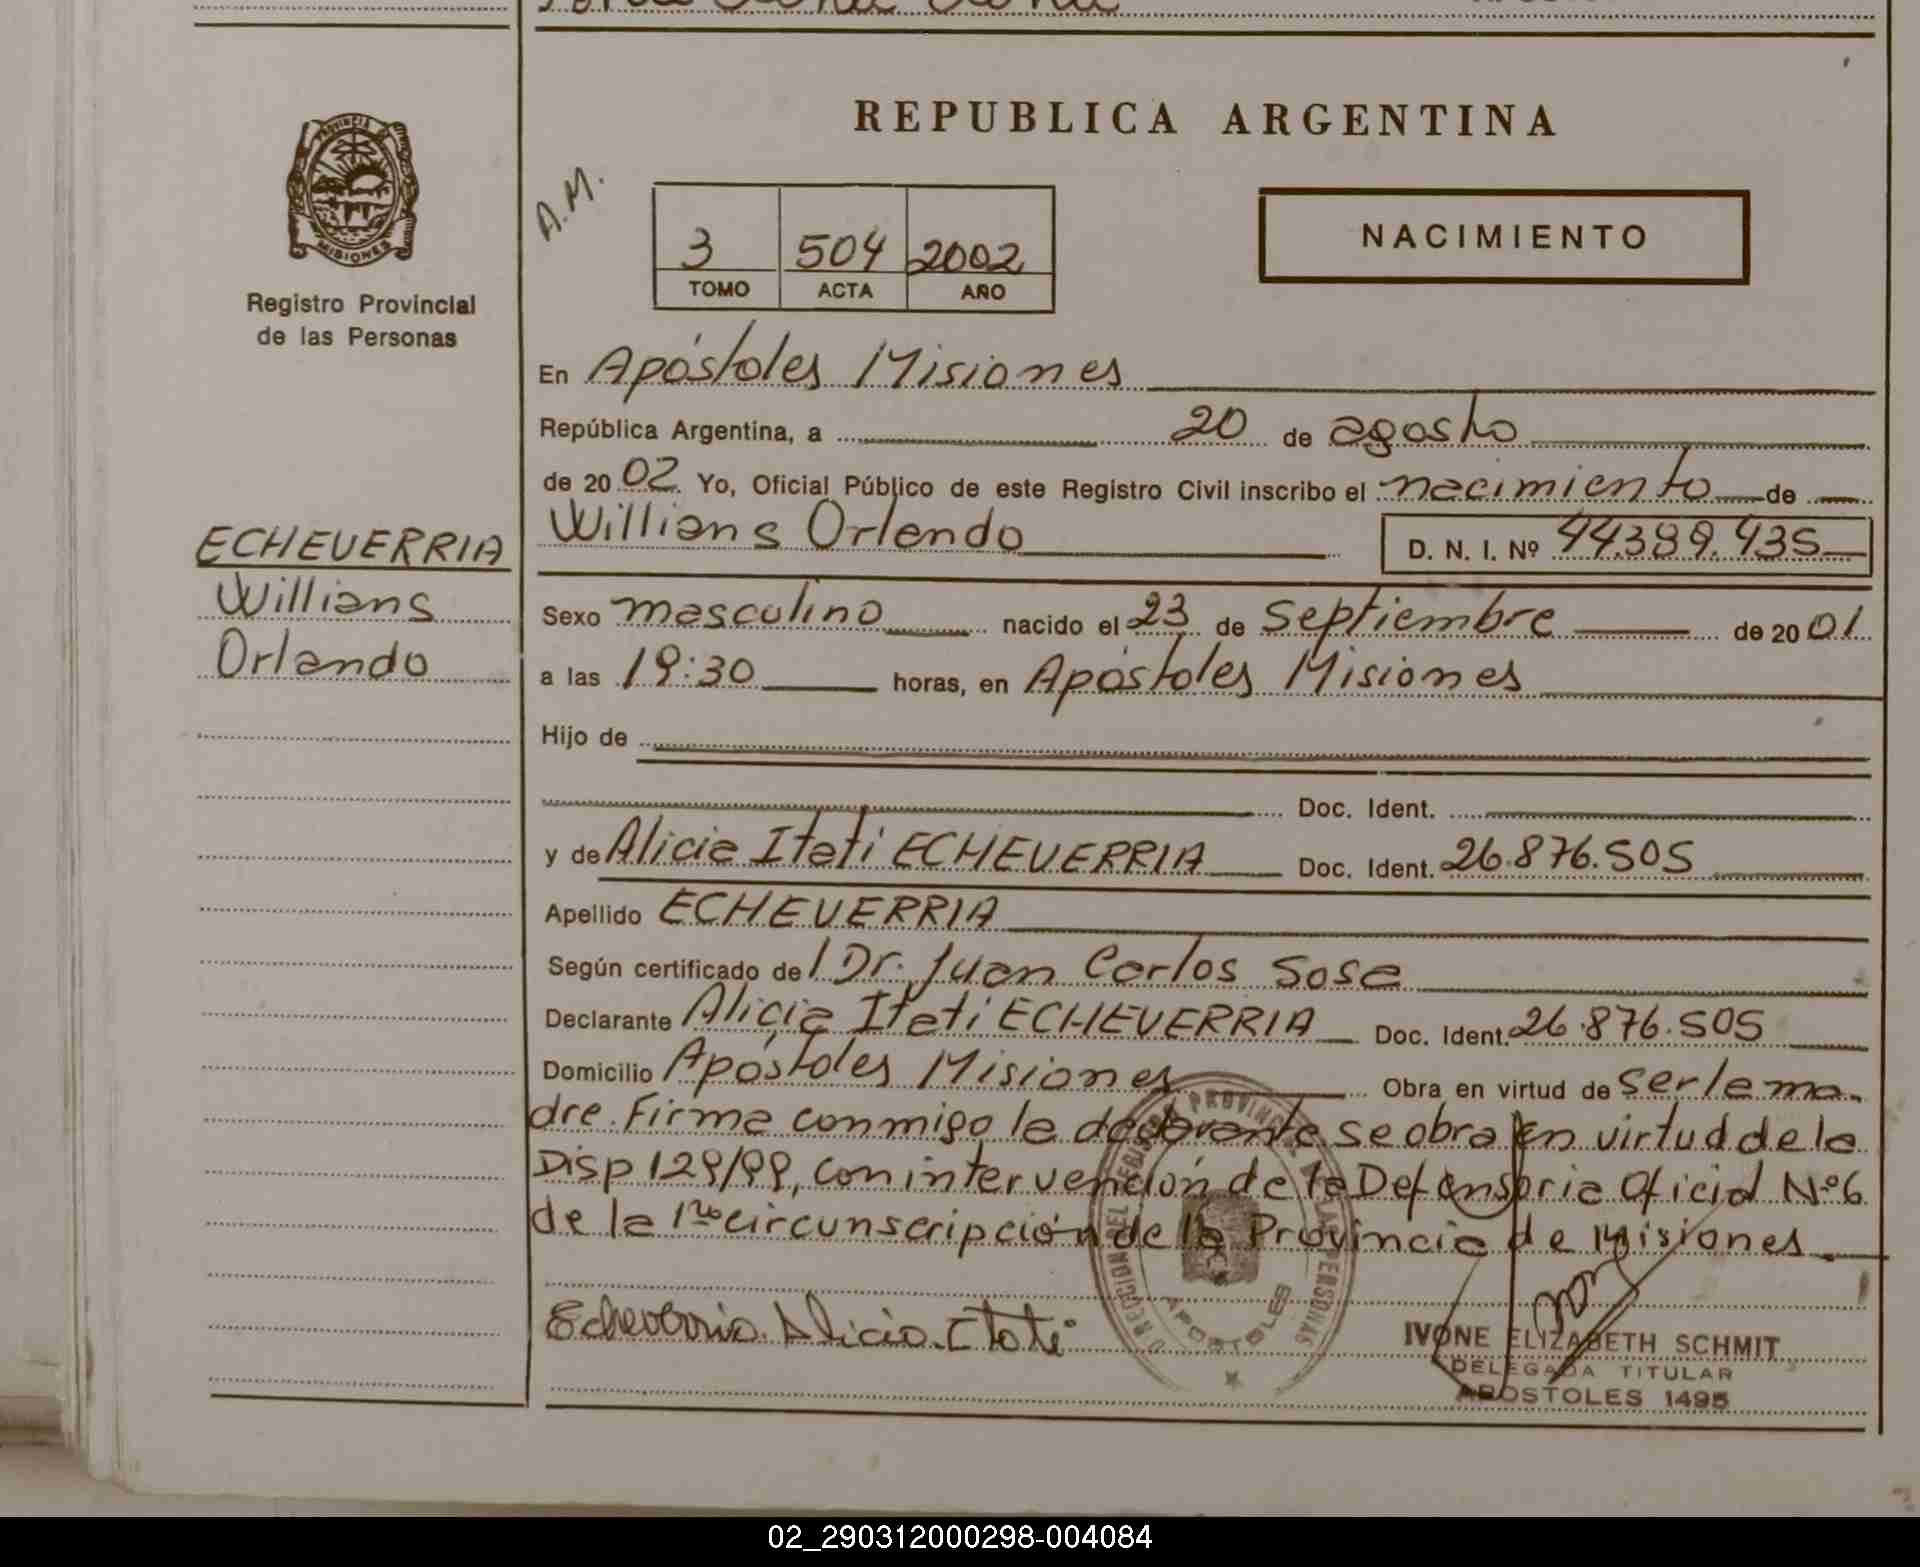 REPUBLICA ARGENTINA
PROVINCIA DE
MISIONES
Registro Provincial
de las Personas
A.M.
3 504 2002
TOMO ACTA AÑO
NACIMIENTO
En Apóstoles Misiones
República Argentina, a 20 de agosto
de 2002. Yo, Oficial Público de este Registro Civil inscribo el nacimiento de
ECHEVERRIA
Willians
Orlando
Willians Orlando D. N. I. Nº 44.389.435
Sexo masculino nacido el 23 de Septiembre de 2001
a las 19:30 horas, en Apóstoles Misiones
Hijo de
Doc. Ident.
y de Alicia Itati ECHEVERRIA Doc. Ident. 26.876.505
Apellido ECHEVERRIA
Según certificado de l Dr. Juan Carlos Sosa
Declarante Alicia Itati ECHEVERRIA Doc. Ident. 26.876.505
Domicilio Apóstoles Misiones Obra en virtud de ser la ma-
dre. Firma conmigo la declarante se obra en virtud de la
Disp 129/99, con intervención de la Defensoria Oficial Nº 6
de la 1ra circunscripción de la Provincia de Misiones
Echeverria Alicia Itati
APOSTOLES
IVONE ELIZABETH SCHMIT
DELEGADA TITULAR
APOSTOLES 1495
02_290312000298-004084